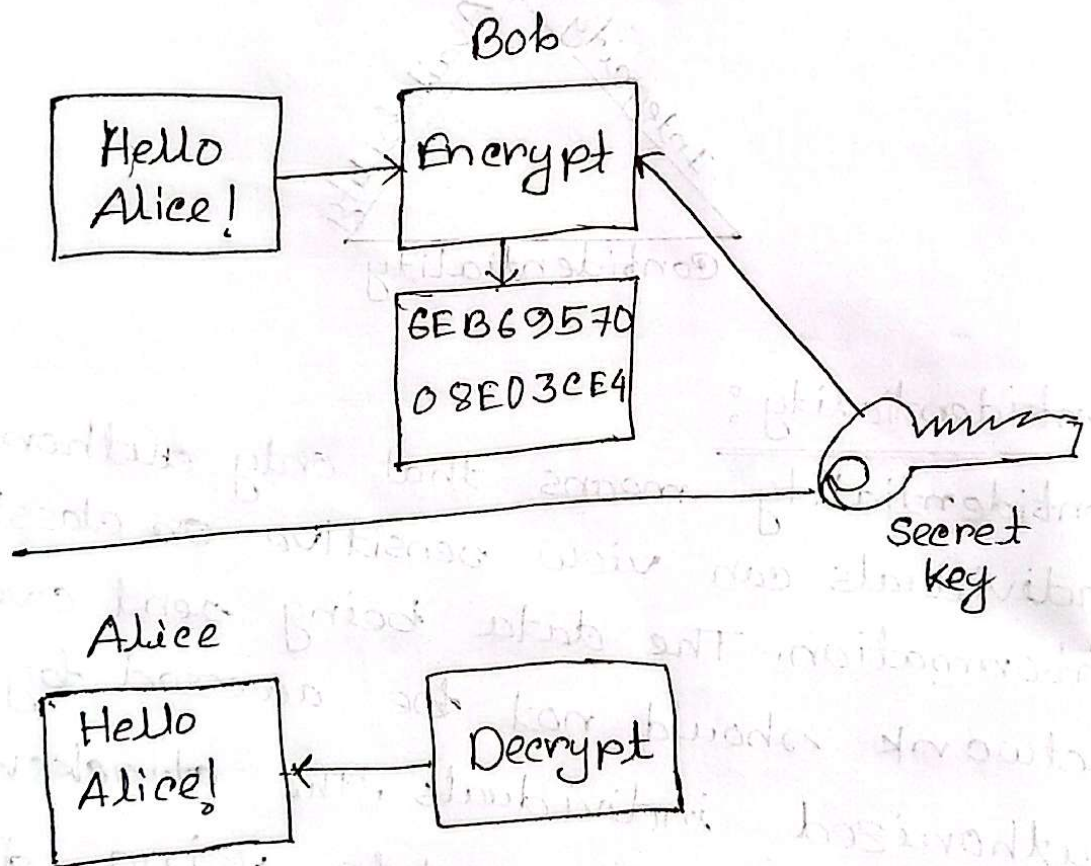 Bob
Hello
Alice!
Encrypt
6EB69570
08E03CE4
Secret
key
Alice
Hello
Alice!
Decrypt